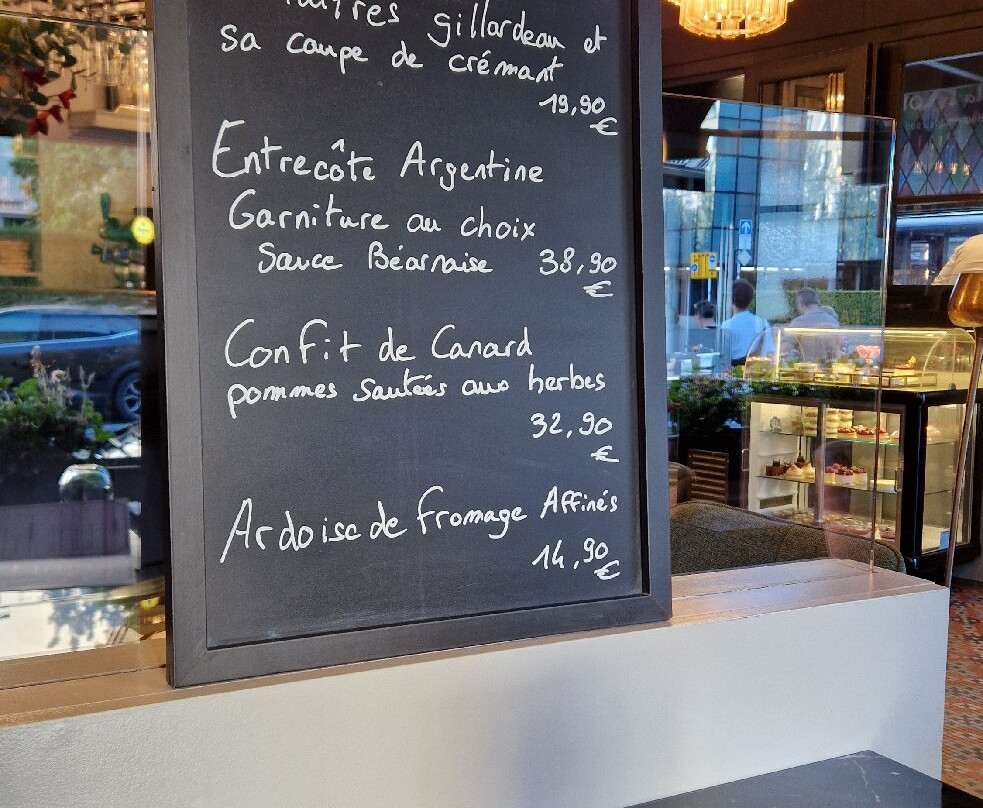 gillardeau et
sa coupe de crémant
19,90
€
Entrecôte Argentine
Garniture au choix
Sauce Béarnaise 38,90
€
Confit de Canard
pommes sautées aux herbes
32,90
€
Ardoise de fromage Affinés
14,90
€